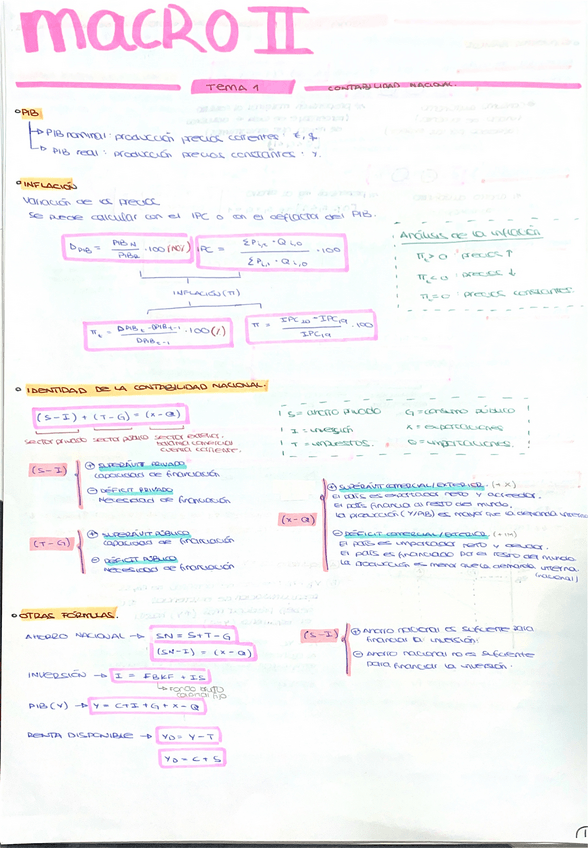 MACRO II
TEMA 1
CONTABILIDAD NACIONAL.
• PIB
↳ PIB nominal: producción precios corrientes: €, $
↳ PIB real: producción precios constantes: Y.
• INFLACIÓN
Variación de los precios
Se puede calcular con el IPC o con el deflactor del PIB.
D PIB = PIB N / PIB R · 100 (%)
IPC = Σ P i,t · Q i,0 / Σ P i,0 · Q i,0 · 100
INFLACIÓN (π)
π t = DPIB t - DPIB t-1 / DPIB t-1 · 100 (%)
π = IPC 20 - IPC 19 / IPC 19 · 100
Análisis de la inflación
π t > 0 precios ↑
π t < 0 : precios ↓
π t = 0 : precios constantes
• IDENTIDAD DE LA CONTABILIDAD NACIONAL.
(S-I) + (T-G) = (X-Q)
sector privado sector público sector exterior.
balanza comercial
cuenta corriente.
S = ahorro privado G = consumo público
I = inversión X = exportaciones
T = impuestos. Q = importaciones.
(S-I)
⊕ SUPERÁVIT PRIVADO
capacidad de financiación
⊖ DÉFICIT PRIVADO
Necesidad de financiación
(T-G)
⊕ SUPERÁVIT PÚBLICO
capacidad de financiación
⊖ DÉFICIT PÚBLICO
Necesidad de financiación
(X-Q)
⊕ SUPERÁVIT COMERCIAL/EXTERIOR. (+X)
El país es exportador neto y acreedor.
El país financia al resto del mundo.
La producción (Y/PIB) es mayor que la demanda interna
⊖ DÉFICIT COMERCIAL/EXTERIOR. (+IM)
El país es importador neto y deudor.
El país es financiado por el resto del mundo
La producción es menor que la demanda interna
(nacional)
• OTRAS FÓRMULAS.
AHORRO NACIONAL → SN = S+T-G
(SN-I) = (X-Q)
INVERSIÓN → I = FBKF + IS
PIB (Y) → Y = C+I+G+X-Q
RENTA DISPONIBLE → YD = Y-T
YD = C+S
(S-I)
⊕ Ahorro nacional es suficiente para
financiar la inversión.
⊖ Ahorro nacional no es suficiente
para financiar la inversión.